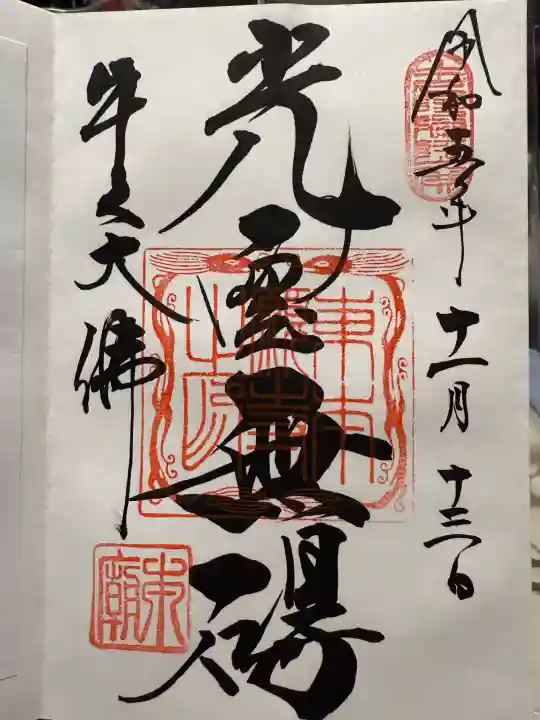 令和五年十一月十三日
光雲無碍
牛久大佛
東本